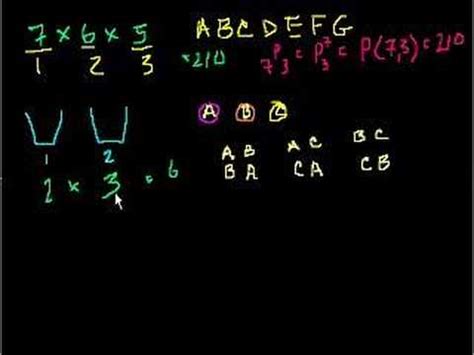 7 × 6 × 5 = 210
1 2 3
A B C D E F G
₇P₃ = P₃⁷ = P(7,3) = 210
A B C
1 2
2 × 3 = 6
A B A C B C
B A C A C B